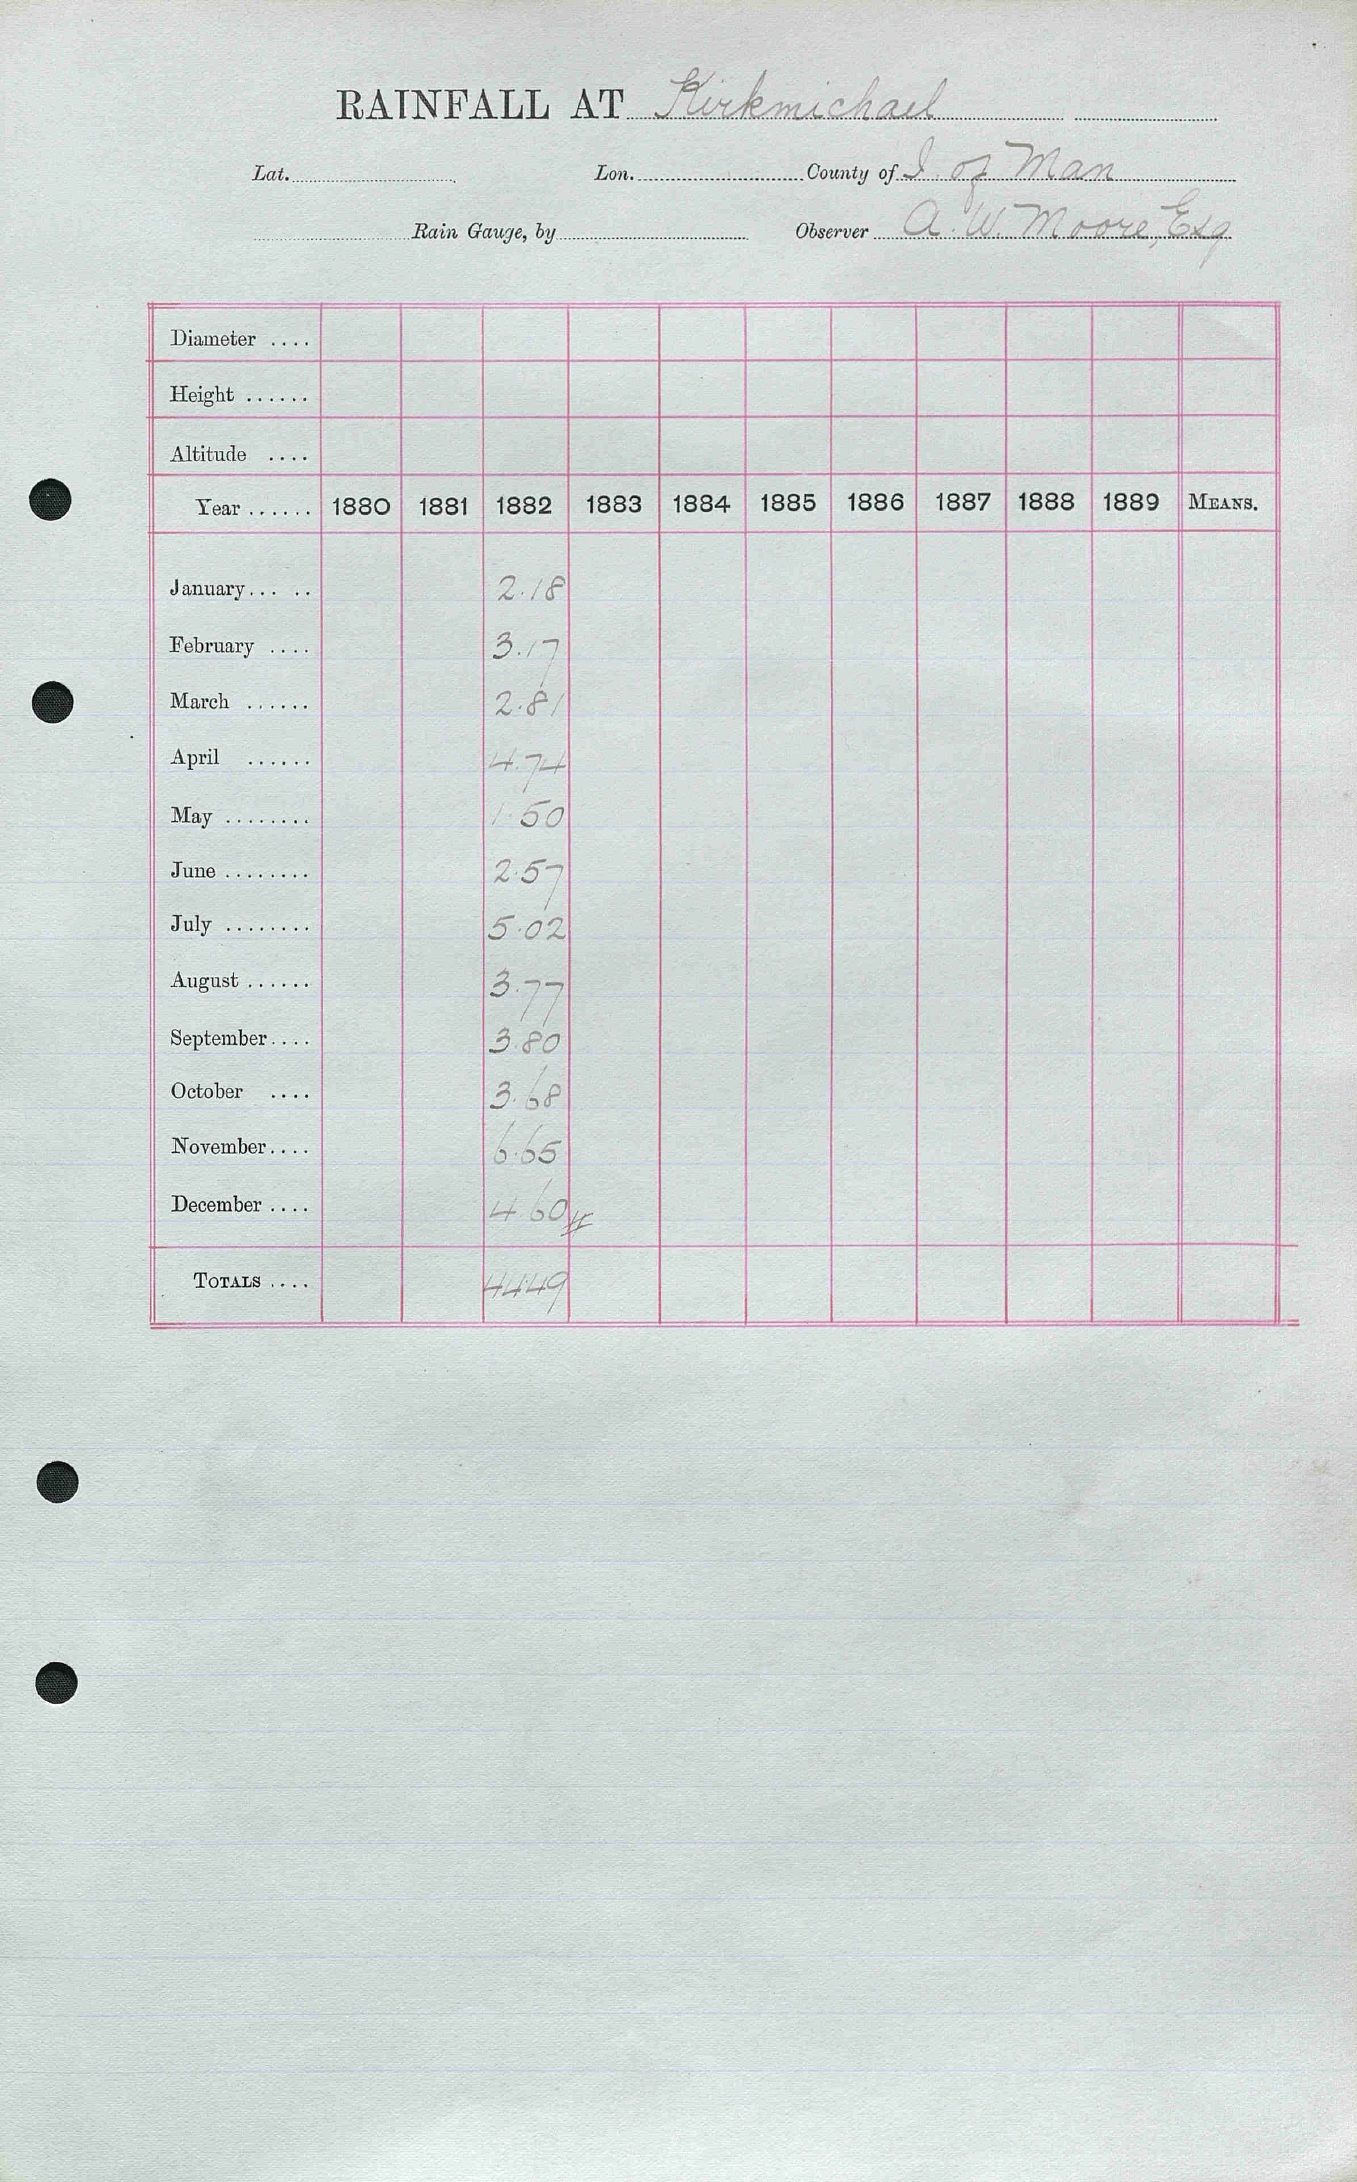 RAINFALL AT Kirkmichael
Lat. Lon. County of I. of Man
Rain Gauge, by Observer A. W. Moore, Esq
Diameter ....
Height ......
Altitude ....
Year ...... 1880 1881 1882 1883 1884 1885 1886 1887 1888 1889 MEANS.
January... .. 2.18
February .... 3.17
March ...... 2.81
April ...... 4.74
May ........ 1.50
June ........ 2.57
July ........ 5.02
August ...... 3.77
September.... 3.80
October .... 3.68
November.... 6.65
December .... 4.60
TOTALS .... 44.49